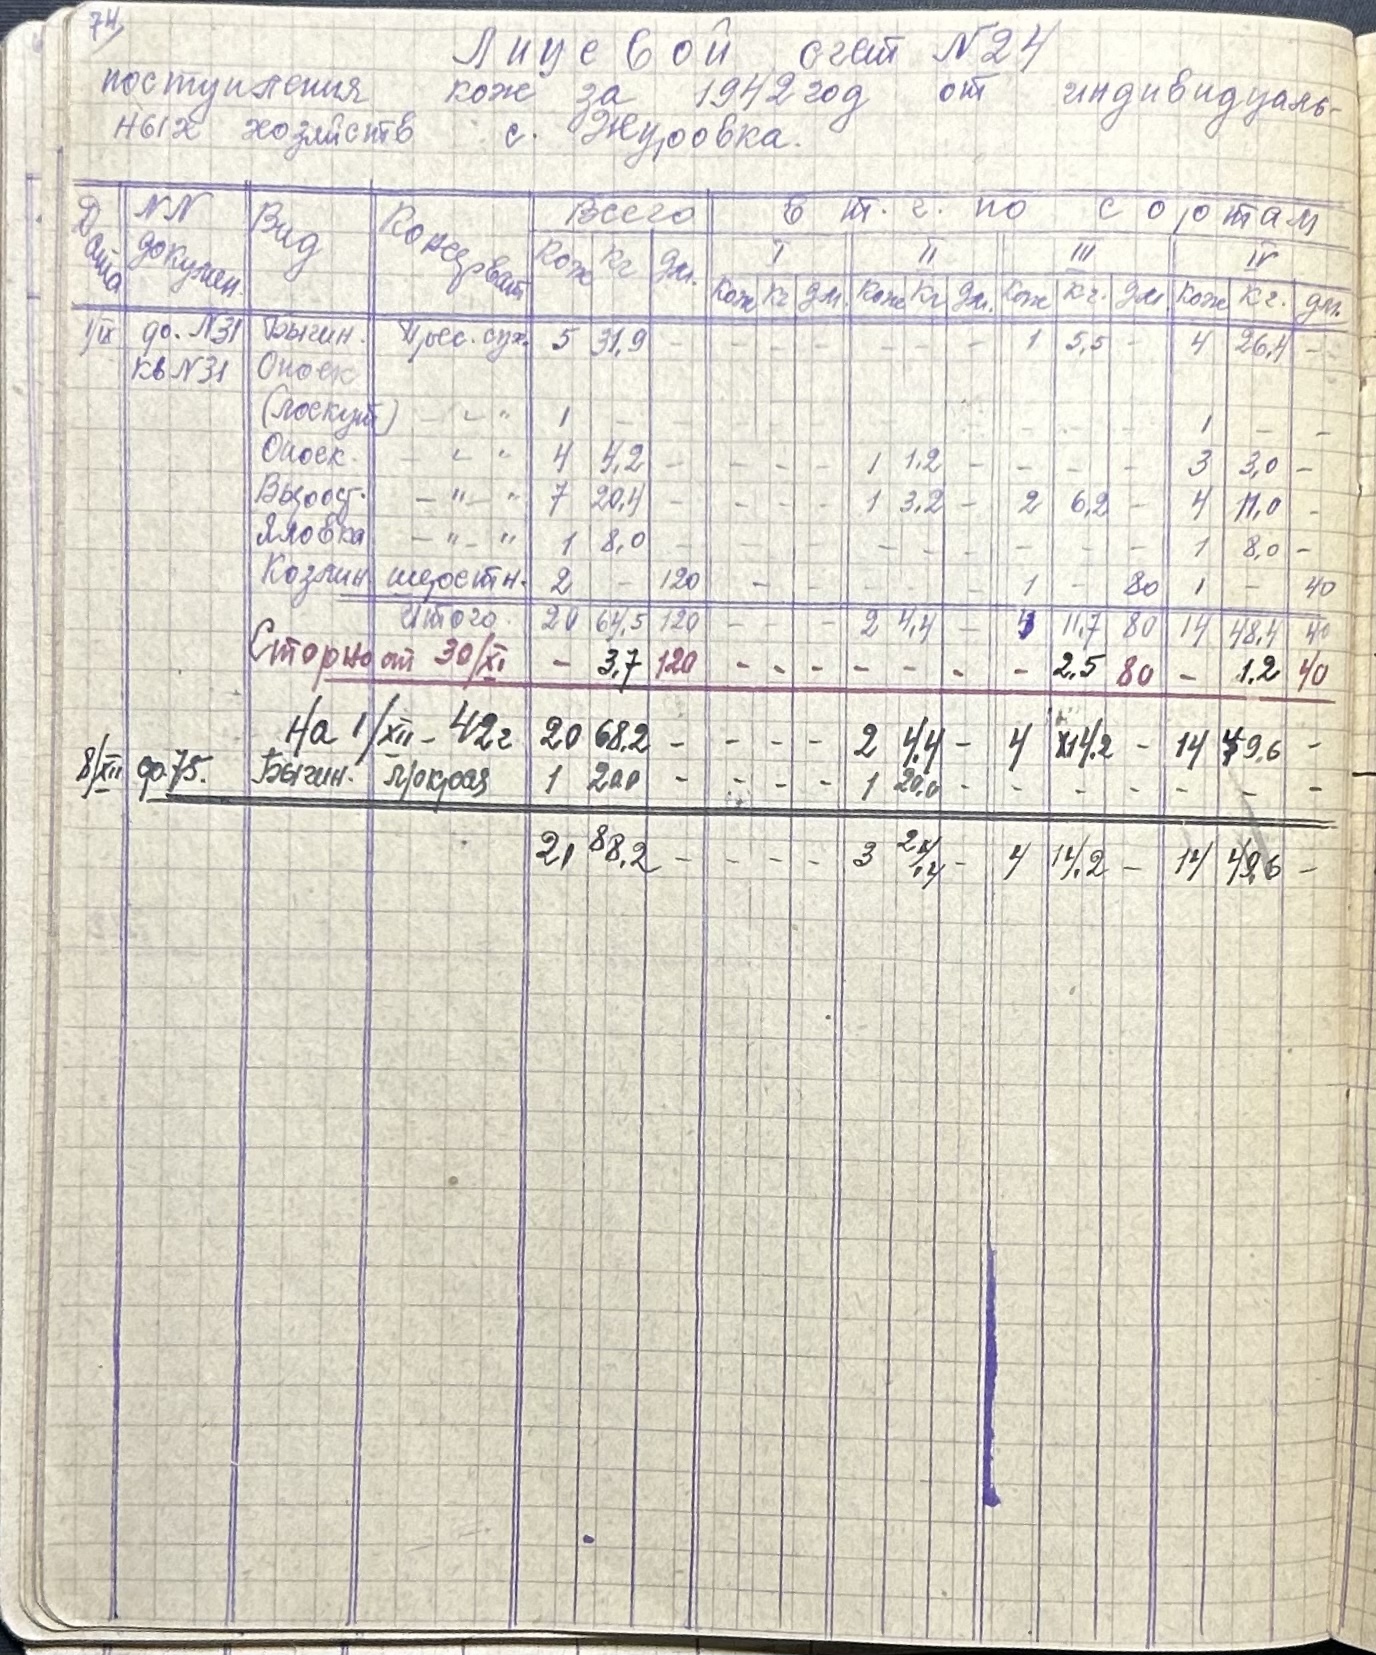 74,
Лицевой счет N24
поступления кож за 1942 год от индивидуаль-
ных хозяйств с. Журовка.
Дата NN докумен. Вид Консерват. Всего в т. ч. по сортам
I II III IV
Кож Кг Дм. Кож Кг Дм. Кож Кг Дм. Кож Кг. Дм Кож Кг. дм.
1/IX до. N31 Бычин. Пресс. сух. 5 31,9 - - - - - - - 1 5,5 - 4 26,4 -
кв N31 Опоек
(лоскут) - " - " 1 - - - - - - - - - - - 1 - -
Опоек. - " - " 4 4,2 - - - - 1 1,2 - - - - 3 3,0 -
Вырост. - " - " 7 20,4 - - - - 1 3,2 - 2 6,2 - 4 11,0 -
Яловка - " - " 1 8,0 - - - - - - - - - - 1 8,0 -
Козлин шерстн. 2 - 120 - 1 - 80 1 - 40
Итого. 20 64,5 120 - - - 2 4,4 - 4 11,7 80 14 48,4 40
Сторно от 30/XI - 3,7 120 - - - - - - - 2,5 80 - 1.2 40
На 1/XII - 42г 20 68,2 - - - - 2 4,4 - 4 14,2 - 14 49,6 -
8/XII до. 75. Бычин. 1 20,0 - - - - 1 20,0 - - - - - - -
21 88,2 - - - - 3 24,4 - 4 14,2 - 14 49,6 -